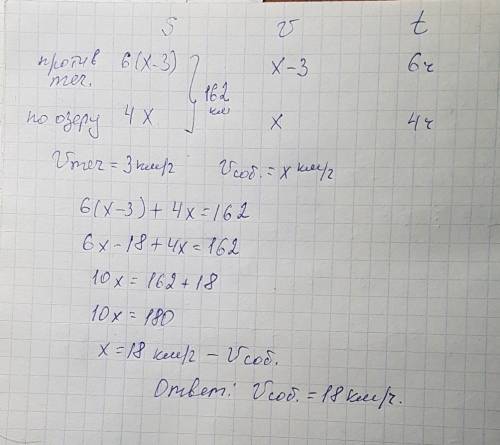 S V t
против 6(x-3) x-3 6ч
теч.
162 км
по озеру 4x x 4ч
Vтеч = 3км/ч Vсоб. = x км/ч
6(x-3) + 4x = 162
6x - 18 + 4x = 162
10x = 162 + 18
10x = 180
x = 18 км/ч - Vсоб.
Ответ: Vсоб. = 18 км/ч.